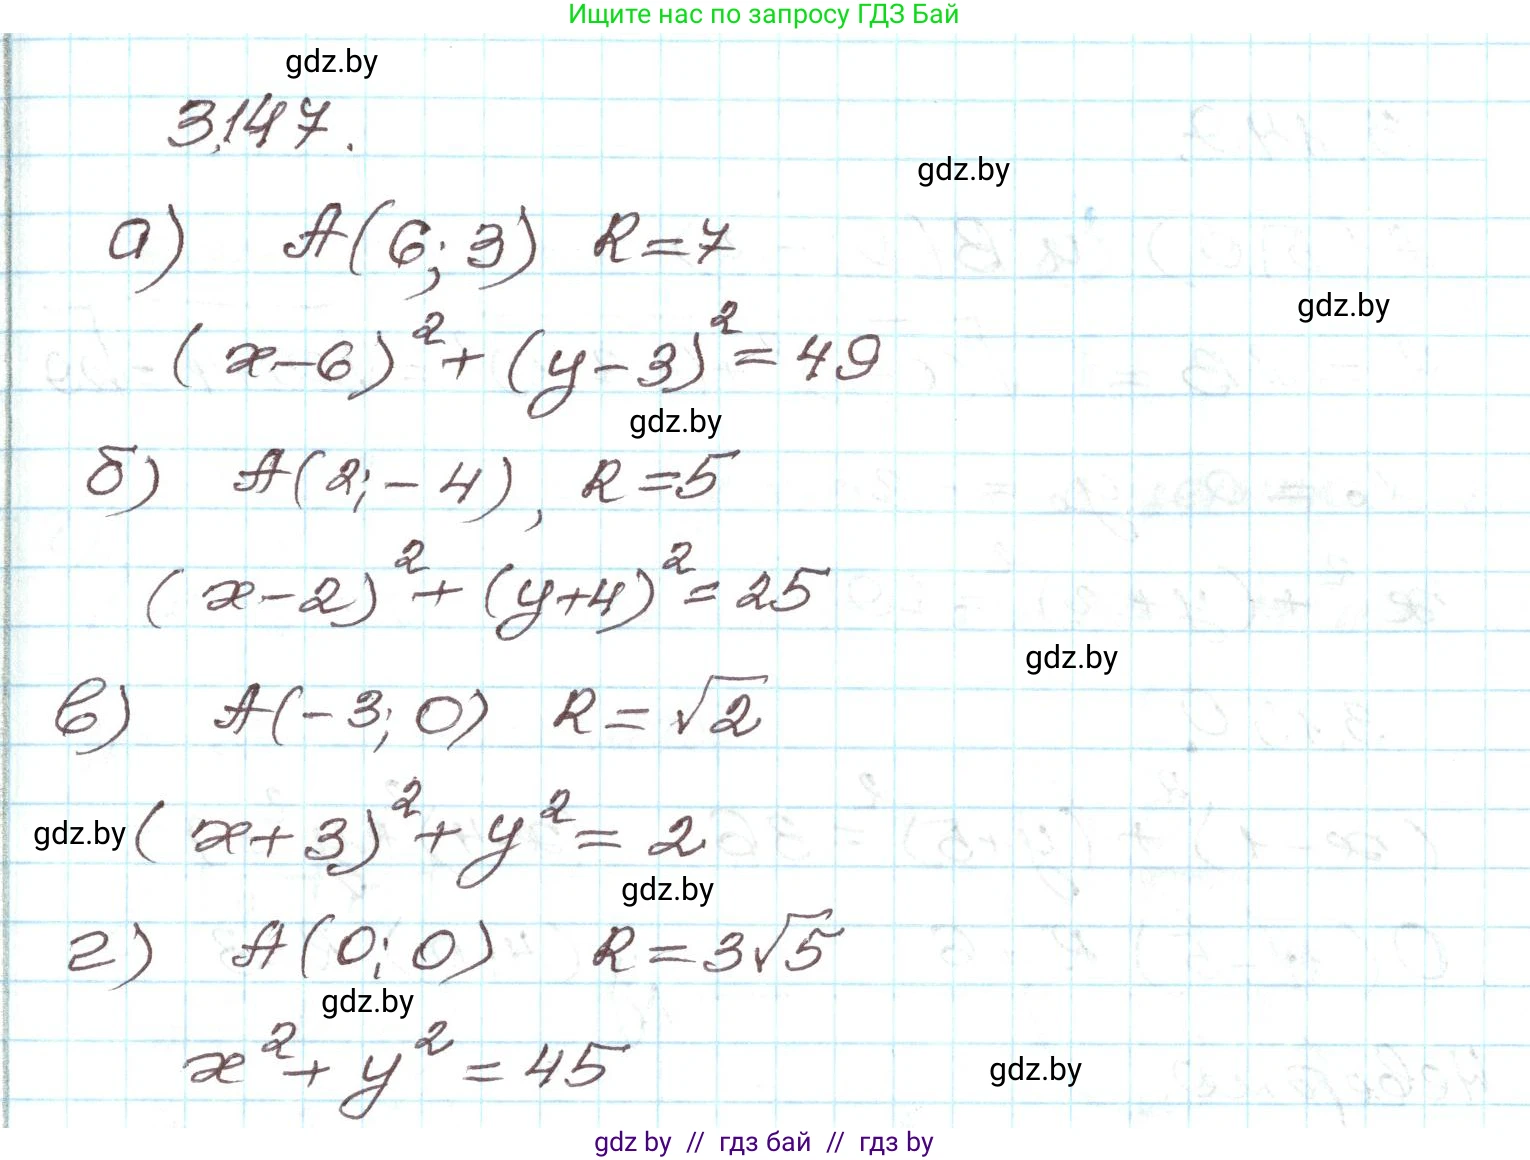 Ищите нас по запросу ГДЗ Бай
gdz.by
3.147.
gdz.by
а) A(6; 3) R=7
gdz.by
(x-6)²+(y-3)²=49
gdz.by
б) A(2; -4), R=5
(x-2)²+(y+4)²=25
gdz.by
в) A(-3; 0) R=√2
gdz.by (x+3)²+y²=2
gdz.by
г) A(0; 0) R=3√5
gdz.by
x²+y²=45
gdz.by
gdz by // гдз бай // гдз by